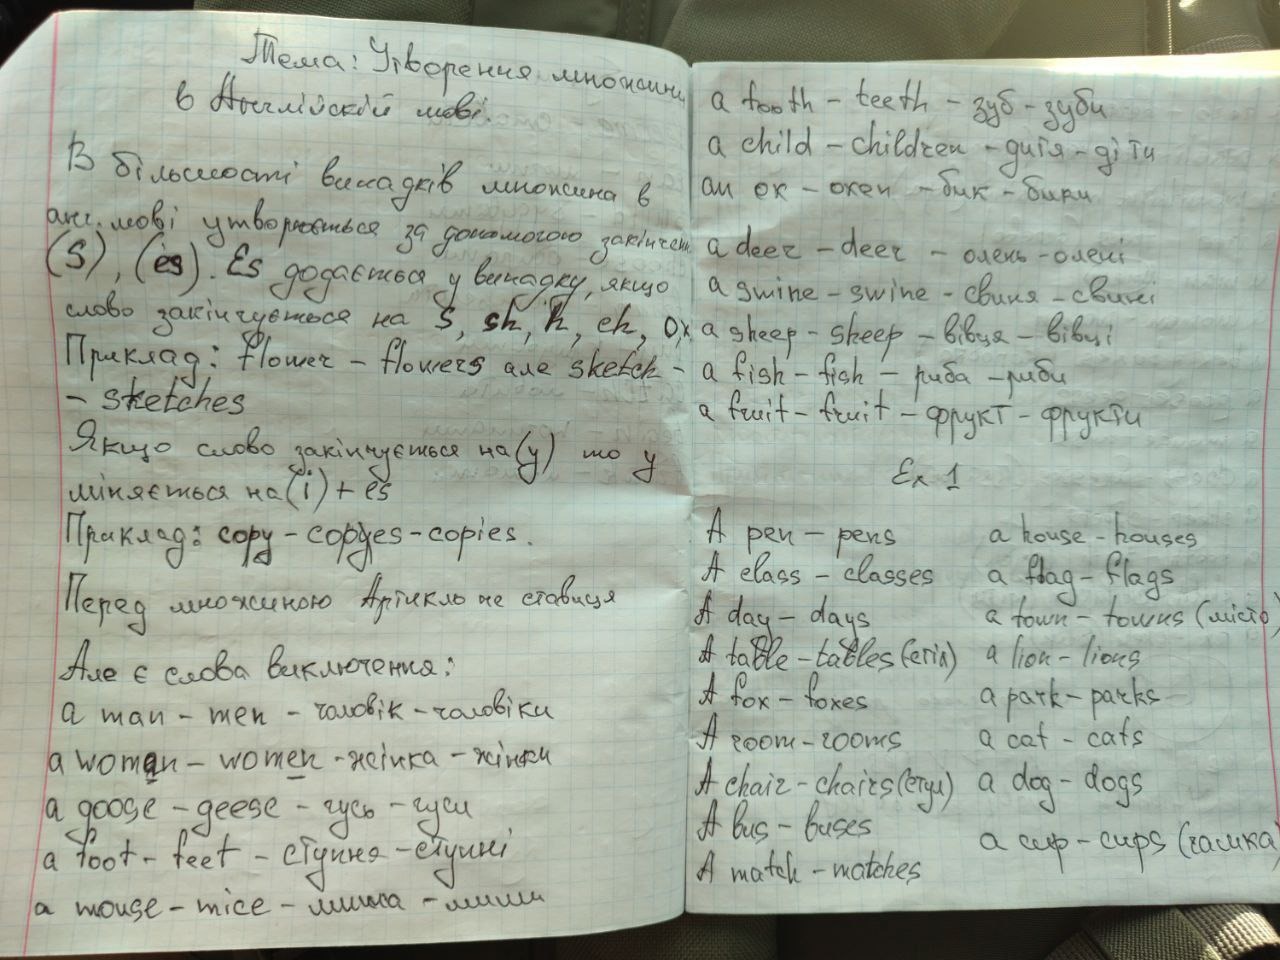 Тема: Утворення множини
в Англійскій мові.
В більшості випадків множина в
анг. мові утворюється за допомогою закінчен
(S), (es). Es додається у випадку, якщо
слово закінчується на s, sh, ch, o, x
Приклад: flower – flowers але sketch –
– sketches
Якщо слово закінчується на (y) то y
міняється на (i) + es
Приклад: copy – copyes – copies.
Перед множиною Артикль не ставиця
Але є слова виключення:
a man – men – чоловік – чоловіки
a woman – women - жінка – жінки
a goose – geese – гусь – гуси
a foot – feet – ступня – ступні
a mouse – mice – миша – миши
a tooth – teeth – зуб – зуби
a child – children – дитя – діти
an ox – oxen – бик – бики
a deer – deer – олень – олені
a swine – swine – свиня – свині
a sheep – sheep – вівця – вівці
a fish – fish – риба – риби
a fruit – fruit – фрукт – фрукти
Ex 1
A pen – pens
A class – classes
A day – days
A table – tables (стіл)
A fox – foxes
A room – rooms
A chair – chairs (стул)
A bus – buses
A match – matches
a house – houses
a flag – flags
a town – towns (місто)
a lion – lions
a park – parks
a cat – cats
a dog – dogs
a cup – cups (чашка)